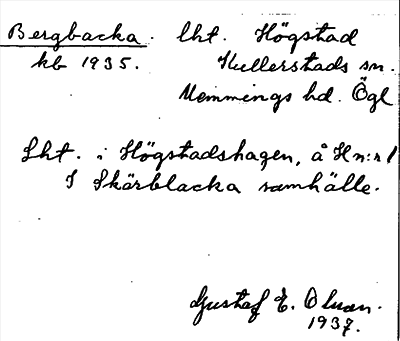 Bergbacka. lht. Högstad
kb 1935. Kullerstads sn.
Memmings hd. Ögl
Lht. i Högstadshagen, å H n:r 1
I Skärblacka samhälle.
Gustaf E. Olsson.
1937.